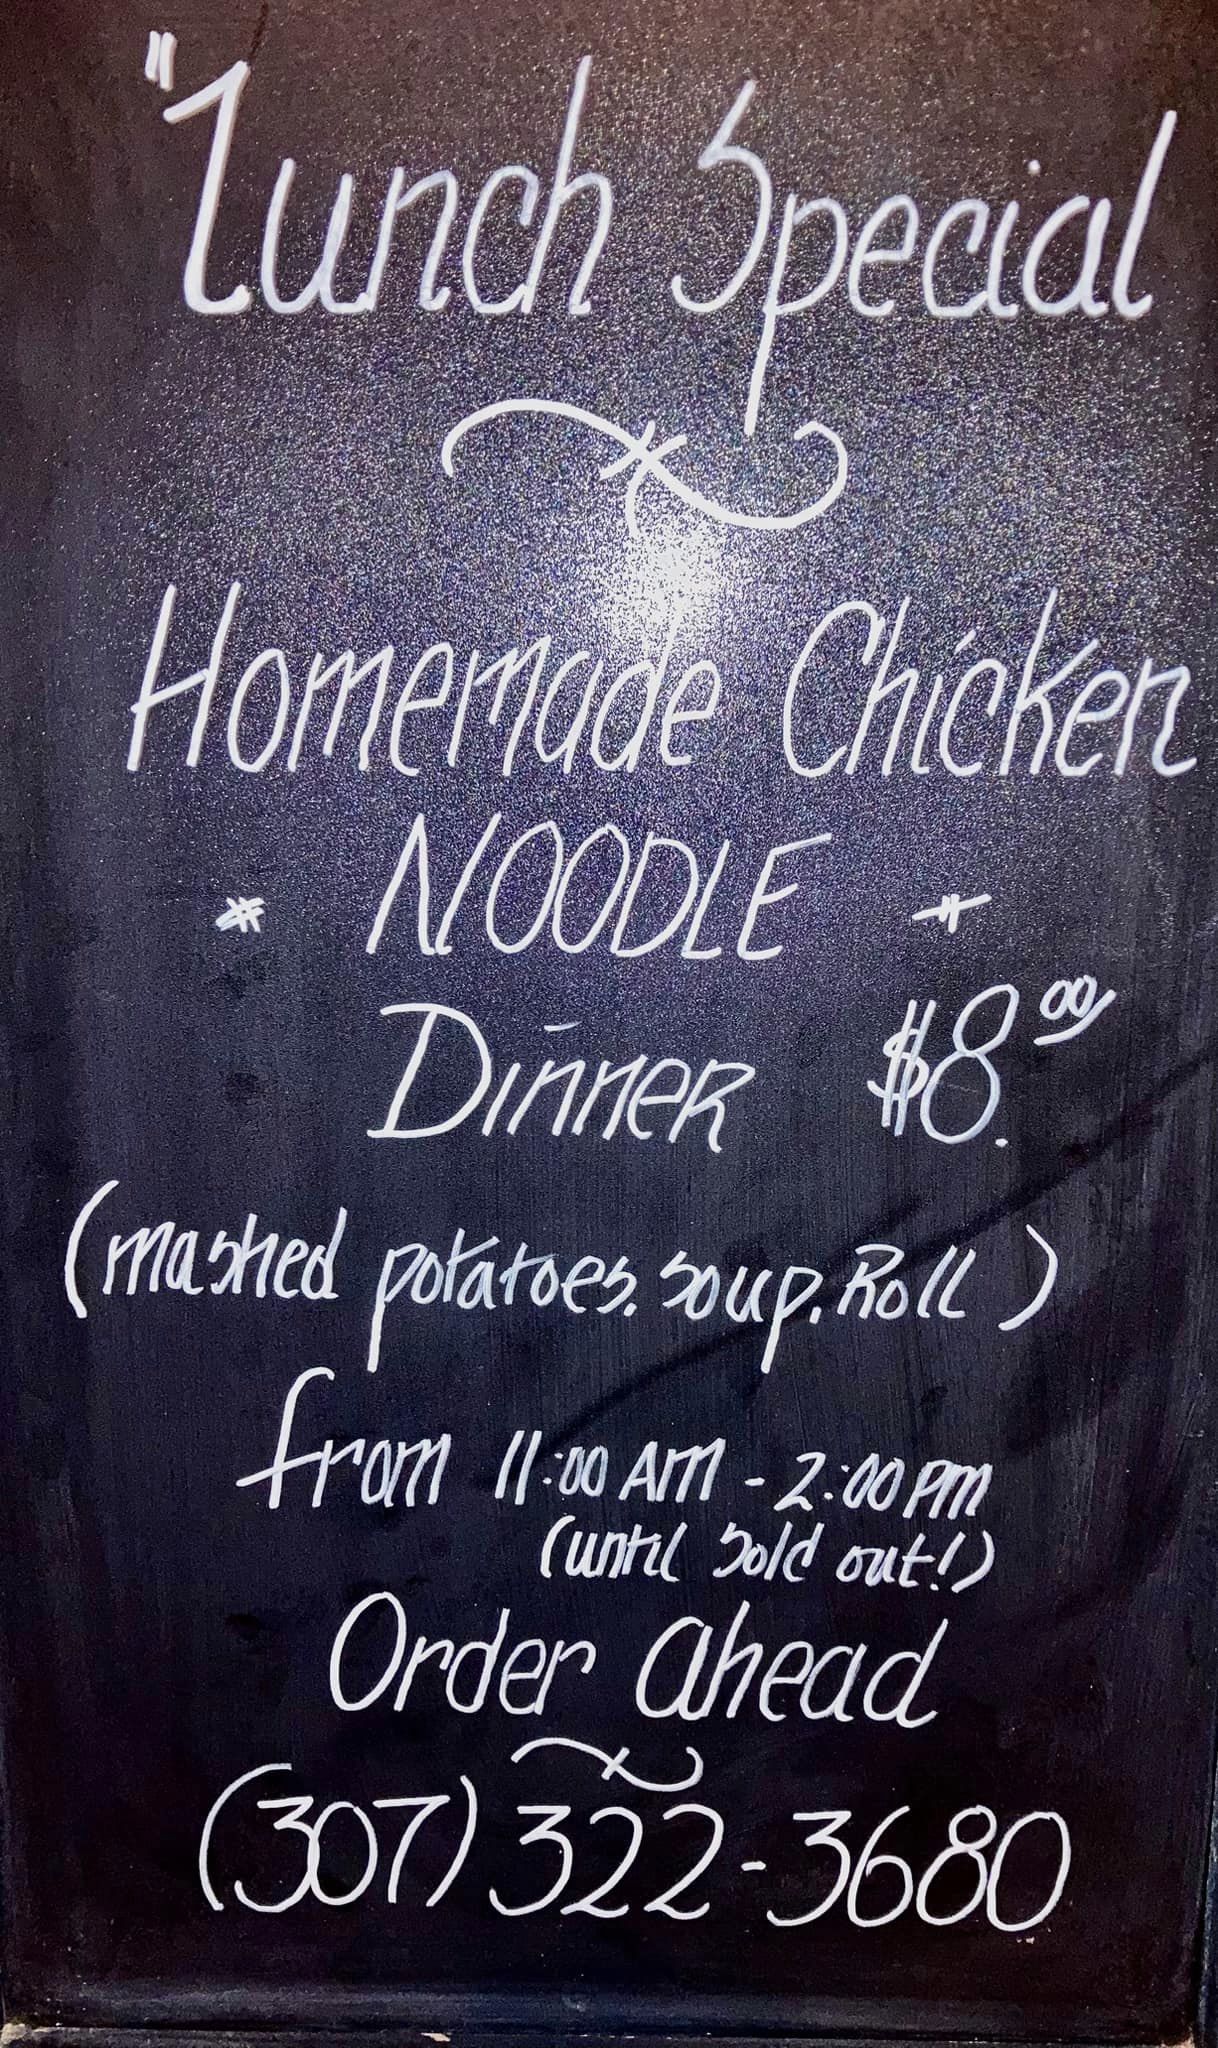 "Lunch Special
Homemade Chicken
* NOODLE *
Dinner $8.00
(mashed potatoes, soup, Roll)
from 11:00 AM - 2:00 pm
(until sold out!)
Order ahead
(307) 322-3680